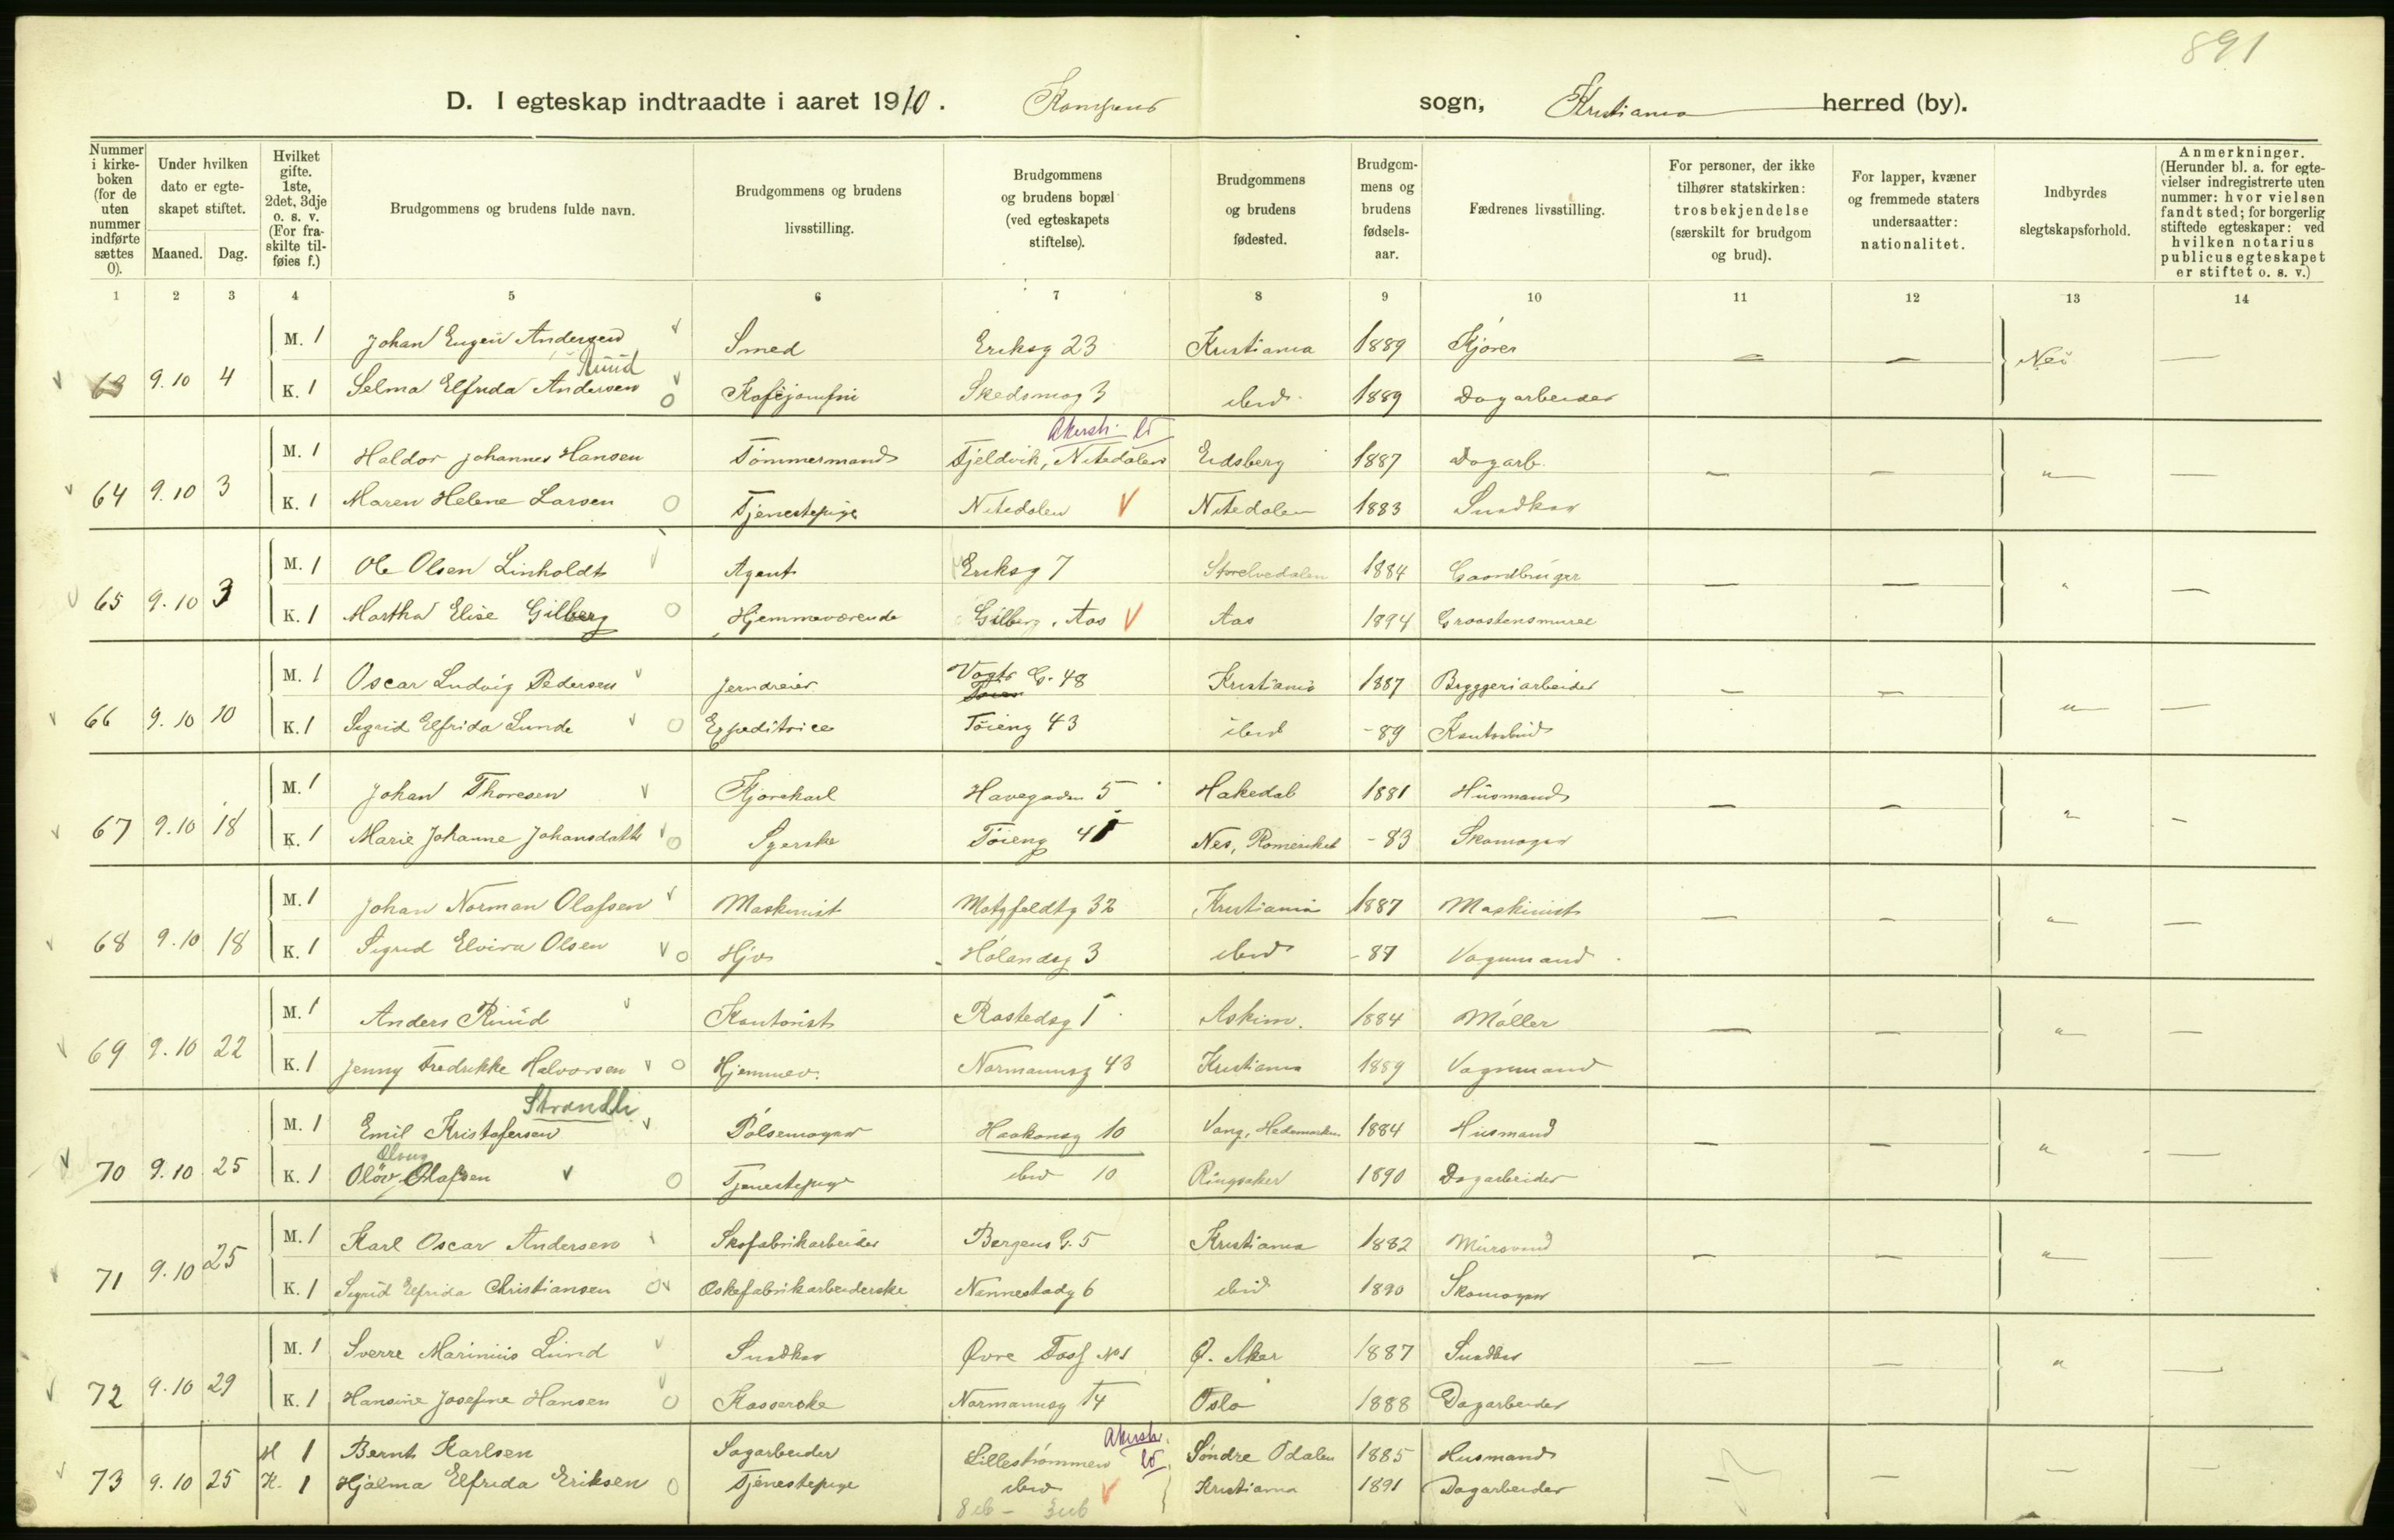 891
D. I egteskap indtraadte i aaret 1910. Kampens sogn, Kristiania herred (by).
Nummer i kirkeboken (for de uten nummer indførte sættes 0).
Under hvilken dato er egteskapet stiftet.
Maaned. Dag.
Hvilket gifte. 1ste, 2det, 3dje o. s. v. (For fraskilte tilføies f.)
Brudgommens og brudens fulde navn.
Brudgommens og brudens livsstilling.
Brudgommens og brudens bopæl (ved egteskapets stiftelse).
Brudgommens og brudens fødested.
Brudgommens og brudens fødselsaar.
Fædrenes livsstilling.
For personer, der ikke tilhører statskirken: trosbekjendelse (særskilt for brudgom og brud).
For lapper, kvæner og fremmede staters undersaatter: nationalitet.
Indbyrdes slegtskapsforhold.
Anmerkninger. (Herunder bl. a. for egtevielser indregistrerte uten nummer: hvor vielsen fandt sted; for borgerlig stiftede egteskaper: ved hvilken notarius publicus egteskapet er stiftet o. s. v.)
1 2 3 4 5 6 7 8 9 10 11 12 13 14
M. 1 Johan Eugen Andersen Smed Eriksg 23 Kristiania 1889 Kjører — — Nei —
Ruud
63 9.10 4 K. 1 Selma Elfrida Andersen Kaféjomfru Skedsmog 3 ibid 1889 Dagarbeider
Akersh. l5
M. 1 Haldor Johannes Hansen Tømmermand Fjeldvik, Nitedalen Eidsberg 1887 Dagarb. — — " —
64 9.10 3 K. 1 Maren Helene Larsen Tjenestepige Nitedalen Nitedalen 1883 Snedker
M. 1 Ole Olsen Linholdt Agent Eriksg 7 Storelvedalen 1884 Gaardbruger — — " —
65 9.10 3 K. 1 Martha Elise Gilberg Hjemmeværende Gilberg, Aas Aas 1894 Graastensmurer
M. 1 Oscar Ludvig Pedersen Jerndreier Vogts G. 48 Kristiania 1887 Bryggeriarbeider — — " —
66 9.10 10 K. 1 Sigrid Elfrida Lunde Expeditrice Tøieng 43 ibid -89 Kontorbud
M. 1 Johan Thoresen Kjørekarl Havegaden 5 Hakedal 1881 Husmand — — " —
67 9.10 18 K. 1 Marie Johanne Johansdatter Syerske Tøieng 45 Nes, Romeriket -83 Skomager
M. 1 Johan Norman Olafsen Maskinist Motzfeldtg 32 Kristiania 1887 Maskinist — — " —
68 9.10 18 K. 1 Sigrid Elvira Olsen Hjv Hølandsg 3 ibid -87 Vognmand
M. 1 Anders Ruud Kontorist Rostedsg 1 Askim. 1884 Møller — — " —
69 9.10 22 K. 1 Jenny Fredrikke Halvorsen Hjemmev. Normannsg 43 Kristiania 1889 Vognmand
Strandli
M. 1 Emil Kristofersen Pølsemager Haakonsg 10 Vang, Hedemarken 1884 Husmand — — " —
Olaug
70 9.10 25 K. 1 Oløv Olafsen Tjenestepige ibid 10 Ringsaker 1890 Dagarbeider
M. 1 Karl Oscar Andersen Skofabrikarbeider Bergens G. 5 Kristiania 1882 Mursvend — — " —
71 9.10 25 K. 1 Sigrid Elfrida Christiansen Æskefabrikarbeiderske Nannestadg 6 ibid 1890 Skomager
M. 1 Sverre Marinius Lund Snedker Øvre Foss No 1 Ø. Aker 1887 Snedker — — " —
72 9.10 29 K. 1 Hansine Josefine Hansen Kassererske Normannsg 14 Oslo 1888 Dagarbeider
Akersh. l5.
M 1 Bernt Karlsen Sagarbeider Lillestrømmen Søndre Odalen 1885 Husmand
73 9.10 25 K. 1 Hjalma Elfrida Eriksen Tjenestepige ibid Kristiania 1891 Dagarbeider — — — —